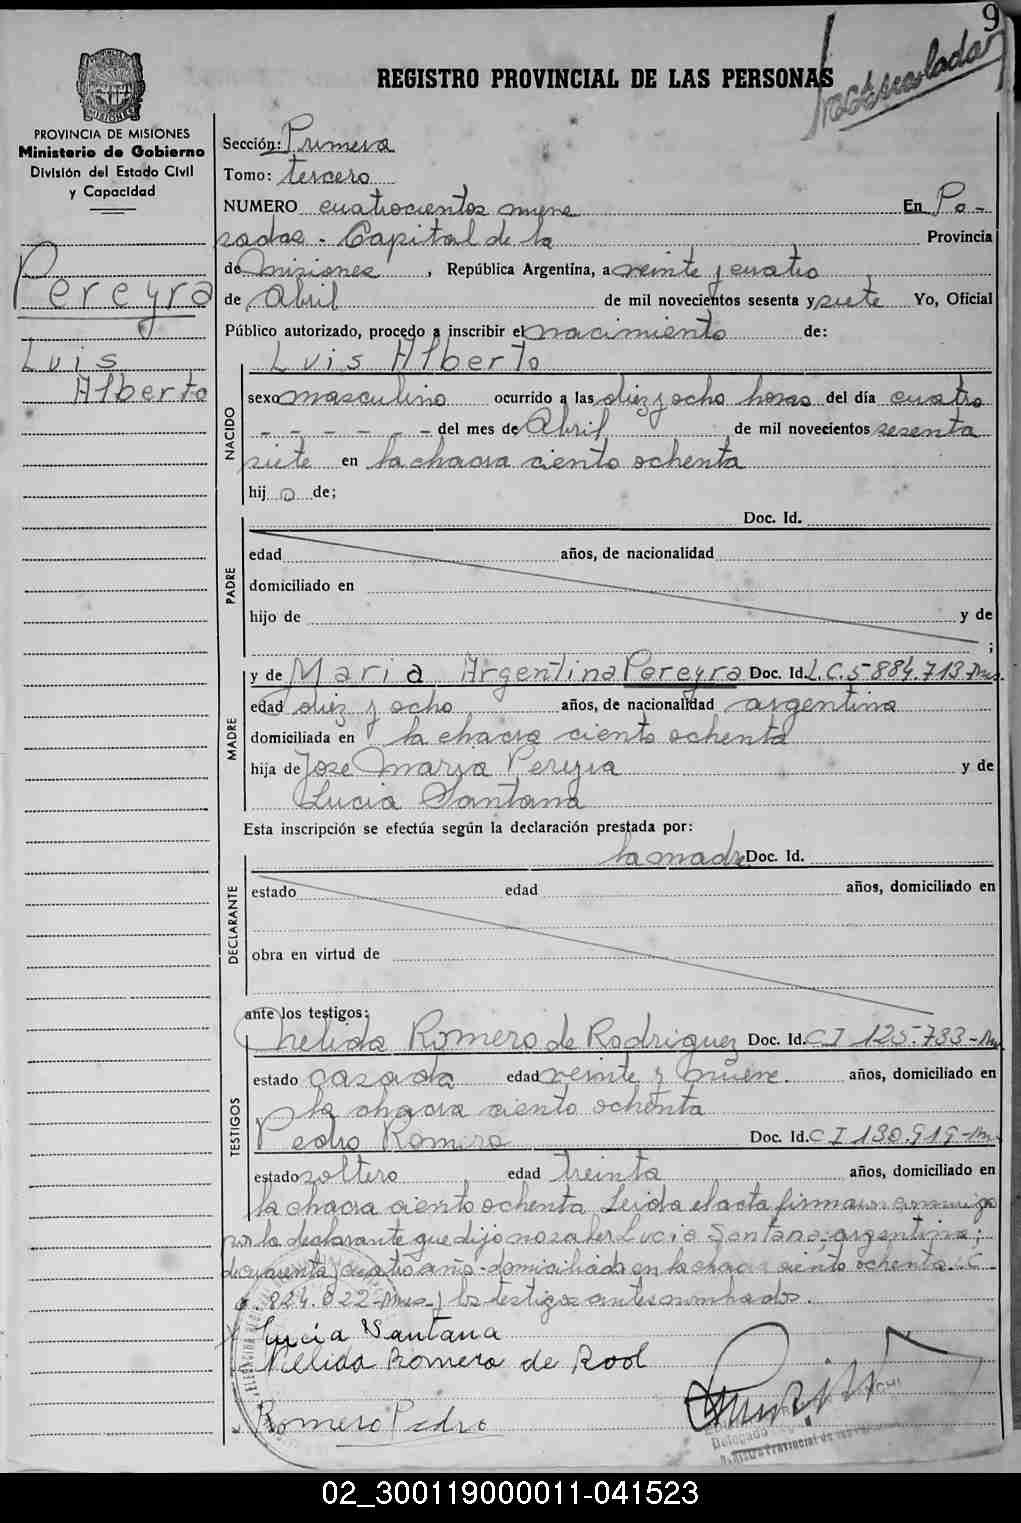 9
REGISTRO PROVINCIAL DE LAS PERSONAS
PROVINCIA DE MISIONES
Ministerio de Gobierno
División del Estado Civil
y Capacidad
Pereyra
Luis
Alberto
Sección: Primera
Tomo: tercero
NUMERO cuatrocientos nueve En Po-
sadas - Capital de la Provincia
de Misiones, República Argentina, a veinte y cuatro
de Abril de mil novecientos sesenta y siete Yo, Oficial
Público autorizado, procedo a inscribir el nacimiento de:
Luis Alberto
NACIDO
sexo masculino ocurrido a las diez y ocho horas del día cuatro
- - - - - - del mes de Abril de mil novecientos sesenta
siete en la chacra ciento ochenta
hij o de;
PADRE
Doc. Id.
edad años, de nacionalidad
domiciliado en
hijo de y de
;
MADRE
y de Maria Argentina Pereyra Doc. Id. L.C. 5.884.713-Mns.
edad diez y ocho años, de nacionalidad argentina
domiciliada en la chacra ciento ochenta
hija de Jose Maria Pereyra y de
Lucia Santana
Esta inscripción se efectúa según la declaración prestada por:
DECLARANTE
la madre Doc. Id.
estado edad años, domiciliado en
obra en virtud de
ante los testigos:
TESTIGOS
Nelida Romero de Rodriguez Doc. Id. C I 125.733-Mns
estado casada edad veinte y nueve. años, domiciliado en
la chacra ciento ochenta
Pedro Romero Doc. Id. C I 130.919-Mns
estado soltero edad treinta años, domiciliado en
la chacra ciento ochenta Leida el acta firman conmigo
por la declarante que dijo no saber Lucia Santana, argentina;
de cuarenta y cuatro años-domiciliada en la chacra ciento ochenta L C
.824.022-Mns y los testigos antes nombrados.
Lucia Santana
Nelida Romero de Rod
Romero Pedro
Registro Provincial de las
02_300119000011-041523